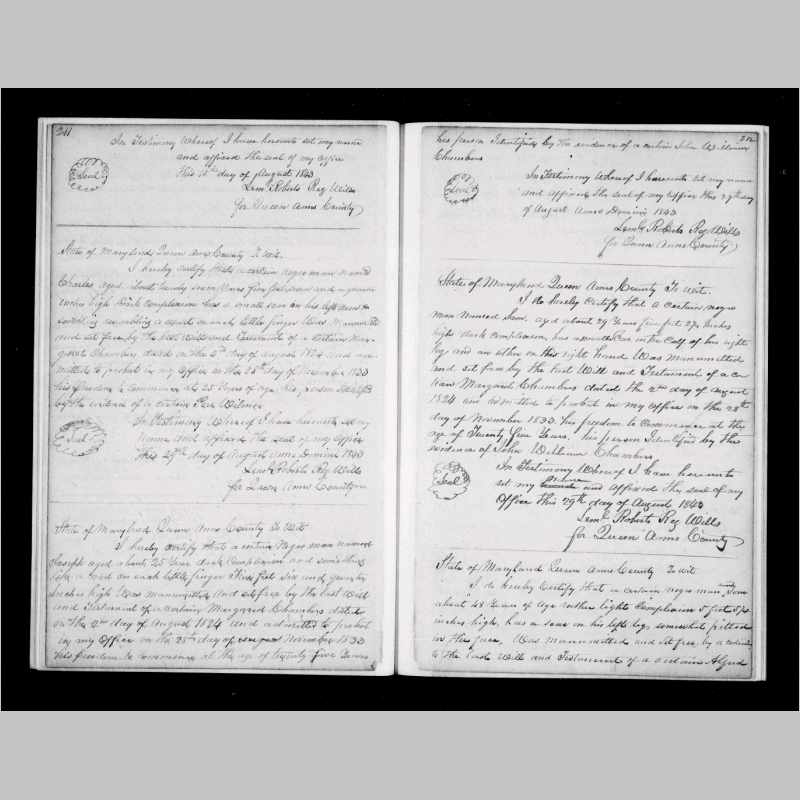 211
In Testimony Whereof I have hereunto set my name
and affixed the seal of my office
this 15th day of August 1843
Seal
Leml Roberts Reg Wills
for Queen Anns County
State of Maryland Queen Anns County To Wit.
I hereby certify that a certain negro man named
Charles aged about twenty seven Years five feet and a quarter
inches high Dark complexion has a small scar on his left
on each little finger Was Manumitted
and set free by the last Will and Testament of a certain Mar-
garet Chambers dated on the 2nd day of August 1824 and ad-
mitted to probat in my Office on the 28th day of November 1833
his freedom to commence at 25 Years of Age his person Identified
by the evidence of a certain Wilmer
In Testimony Whereof I have hereunto set my
name and affixed the seal of my Office
this 29th day of August Anno Domini 1843
Seal
Leml Roberts Reg Wills
for Queen Anns County
State of Maryland Queen Anns County To Wit
I hereby certify that a certain Negro man named
Joseph aged about 25 Years dark Complexion and something
like a on each little finger Five feet six and quarter
Inches high Was manumitted and set free by the last Will
and Testament of a certain Margaret Chambers dated
on the 2nd day of August 1824 and admitted to probat
in my Office on the 28th day of November 1833
his freedom to commence at the age of twenty five Years
212
his person Identified by the evidence of a certain John William
Chambers
In Testimony Whereof I hereunto set my name
and affixed the seal of my Office this 29th day
of August Anno Domini 1843
Seal
Leml Roberts Reg Wills
for Queen Anns County
State of Maryland Queen Anns County To Wit.
I do hereby Certify that a certain negro
man named Sam aged about 29 Years five feet 2¾ Inches
high dark complexion, has a small Scar in the Calf of his right
leg and an other on his right hand Was manumitted
and set free by the last Will and Testament of a cer
tain Margaret Chambers dated the 2nd day of August
1824 and admitted to probat in my Office on the 28th
day of November 1833. his freedom to commence at the
age of Twenty five Years. his person Identified by the
evidence of John William Chambers
In Testimony Whereof I have hereunto
set my name and affixed the seal of my
Office this 29th day of August 1843
Seal
Leml Roberts Reg Wills
for Queen Anns County
State of Maryland Queen Anns County To Wit
I do hereby Certify that a certain negro man named
about 48 Years of Age rather light Complexion 5 feet
inches high, has a scar on his left leg, somewhat pitted
in the face, Was manumitted and set free, by a
to the last Will and Testament of a certain